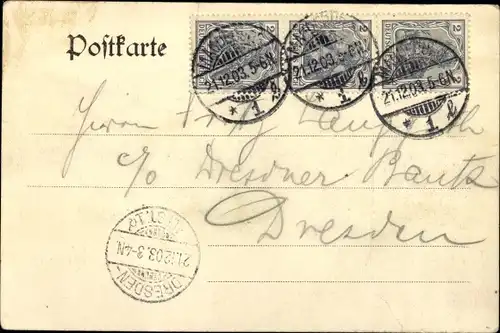 Postkarte
2 2 2
21.12.03. 5-6N. 21.12.03. 5-6N. 21.12.03. 5-6N.
* 1. * 1. * 1.
Herrn Fritz
c/o Dresdner Bank
Dresden
ALTST. 19
21.12.03. 3-4N.
DRESDEN-